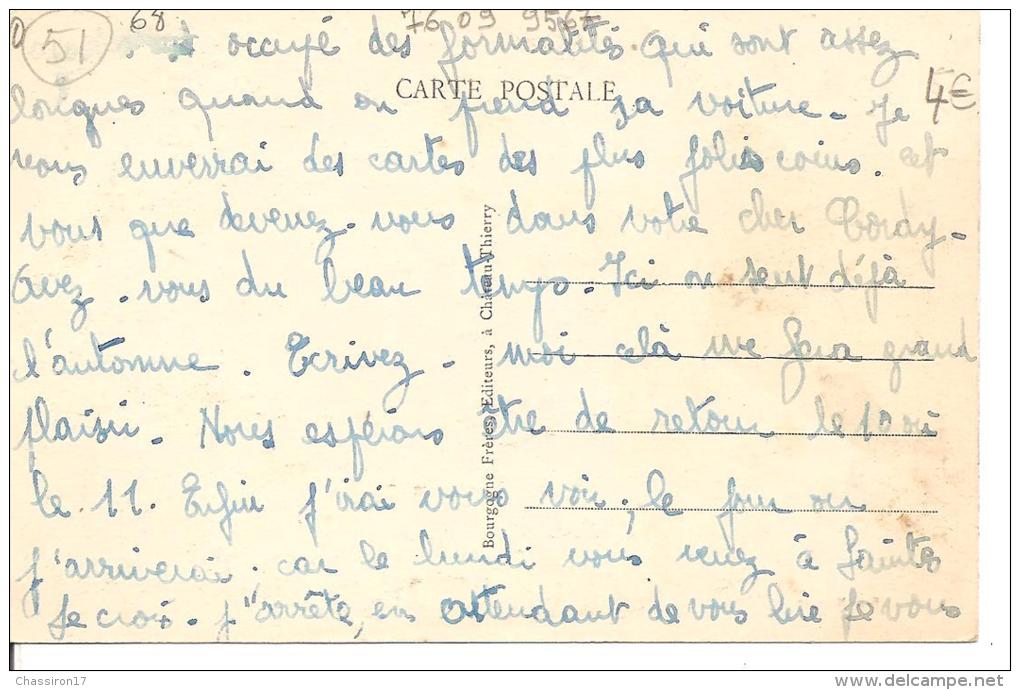 51
68
76 09 9567
occupé des formalités qui sont assez
CARTE POSTALE
4€
longues quand on prend sa voiture. Je
vous enverrai des cartes des plus jolis coins. et
vous que devenez-vous dans votre cher Coray-
Avez-vous du beau temps. Ici on sent déjà
l'automne. Ecrivez-moi celà me fera grand
plaisir. Nous espérons être de retour le 10 où
le 11. Enfin j'irai vous voir, le jour ou
j'arriverai, car le lundi vous venez à Saintes
Je crois. J'arrête, en attendant de vous lire je vous
Bourgogne Frères, Editeurs, à Château-Thierry
Chassiron17
delcampe.net